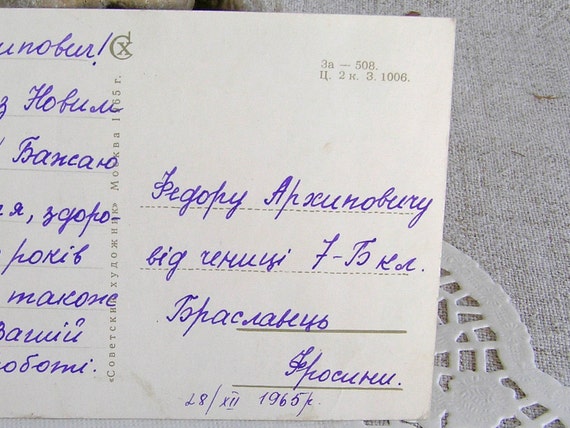 ипович!
з Новим
Бажаю
я, здоро-
років
також
Вашій
роботі.
«Советский художник» Москва 1965 г.
СХ
За — 508.
Ц. 2 к. З. 1006.
Федору Архиповичу
від учениці 7-Б кл.
Браславець
Фросини.
28/XII 1965р.